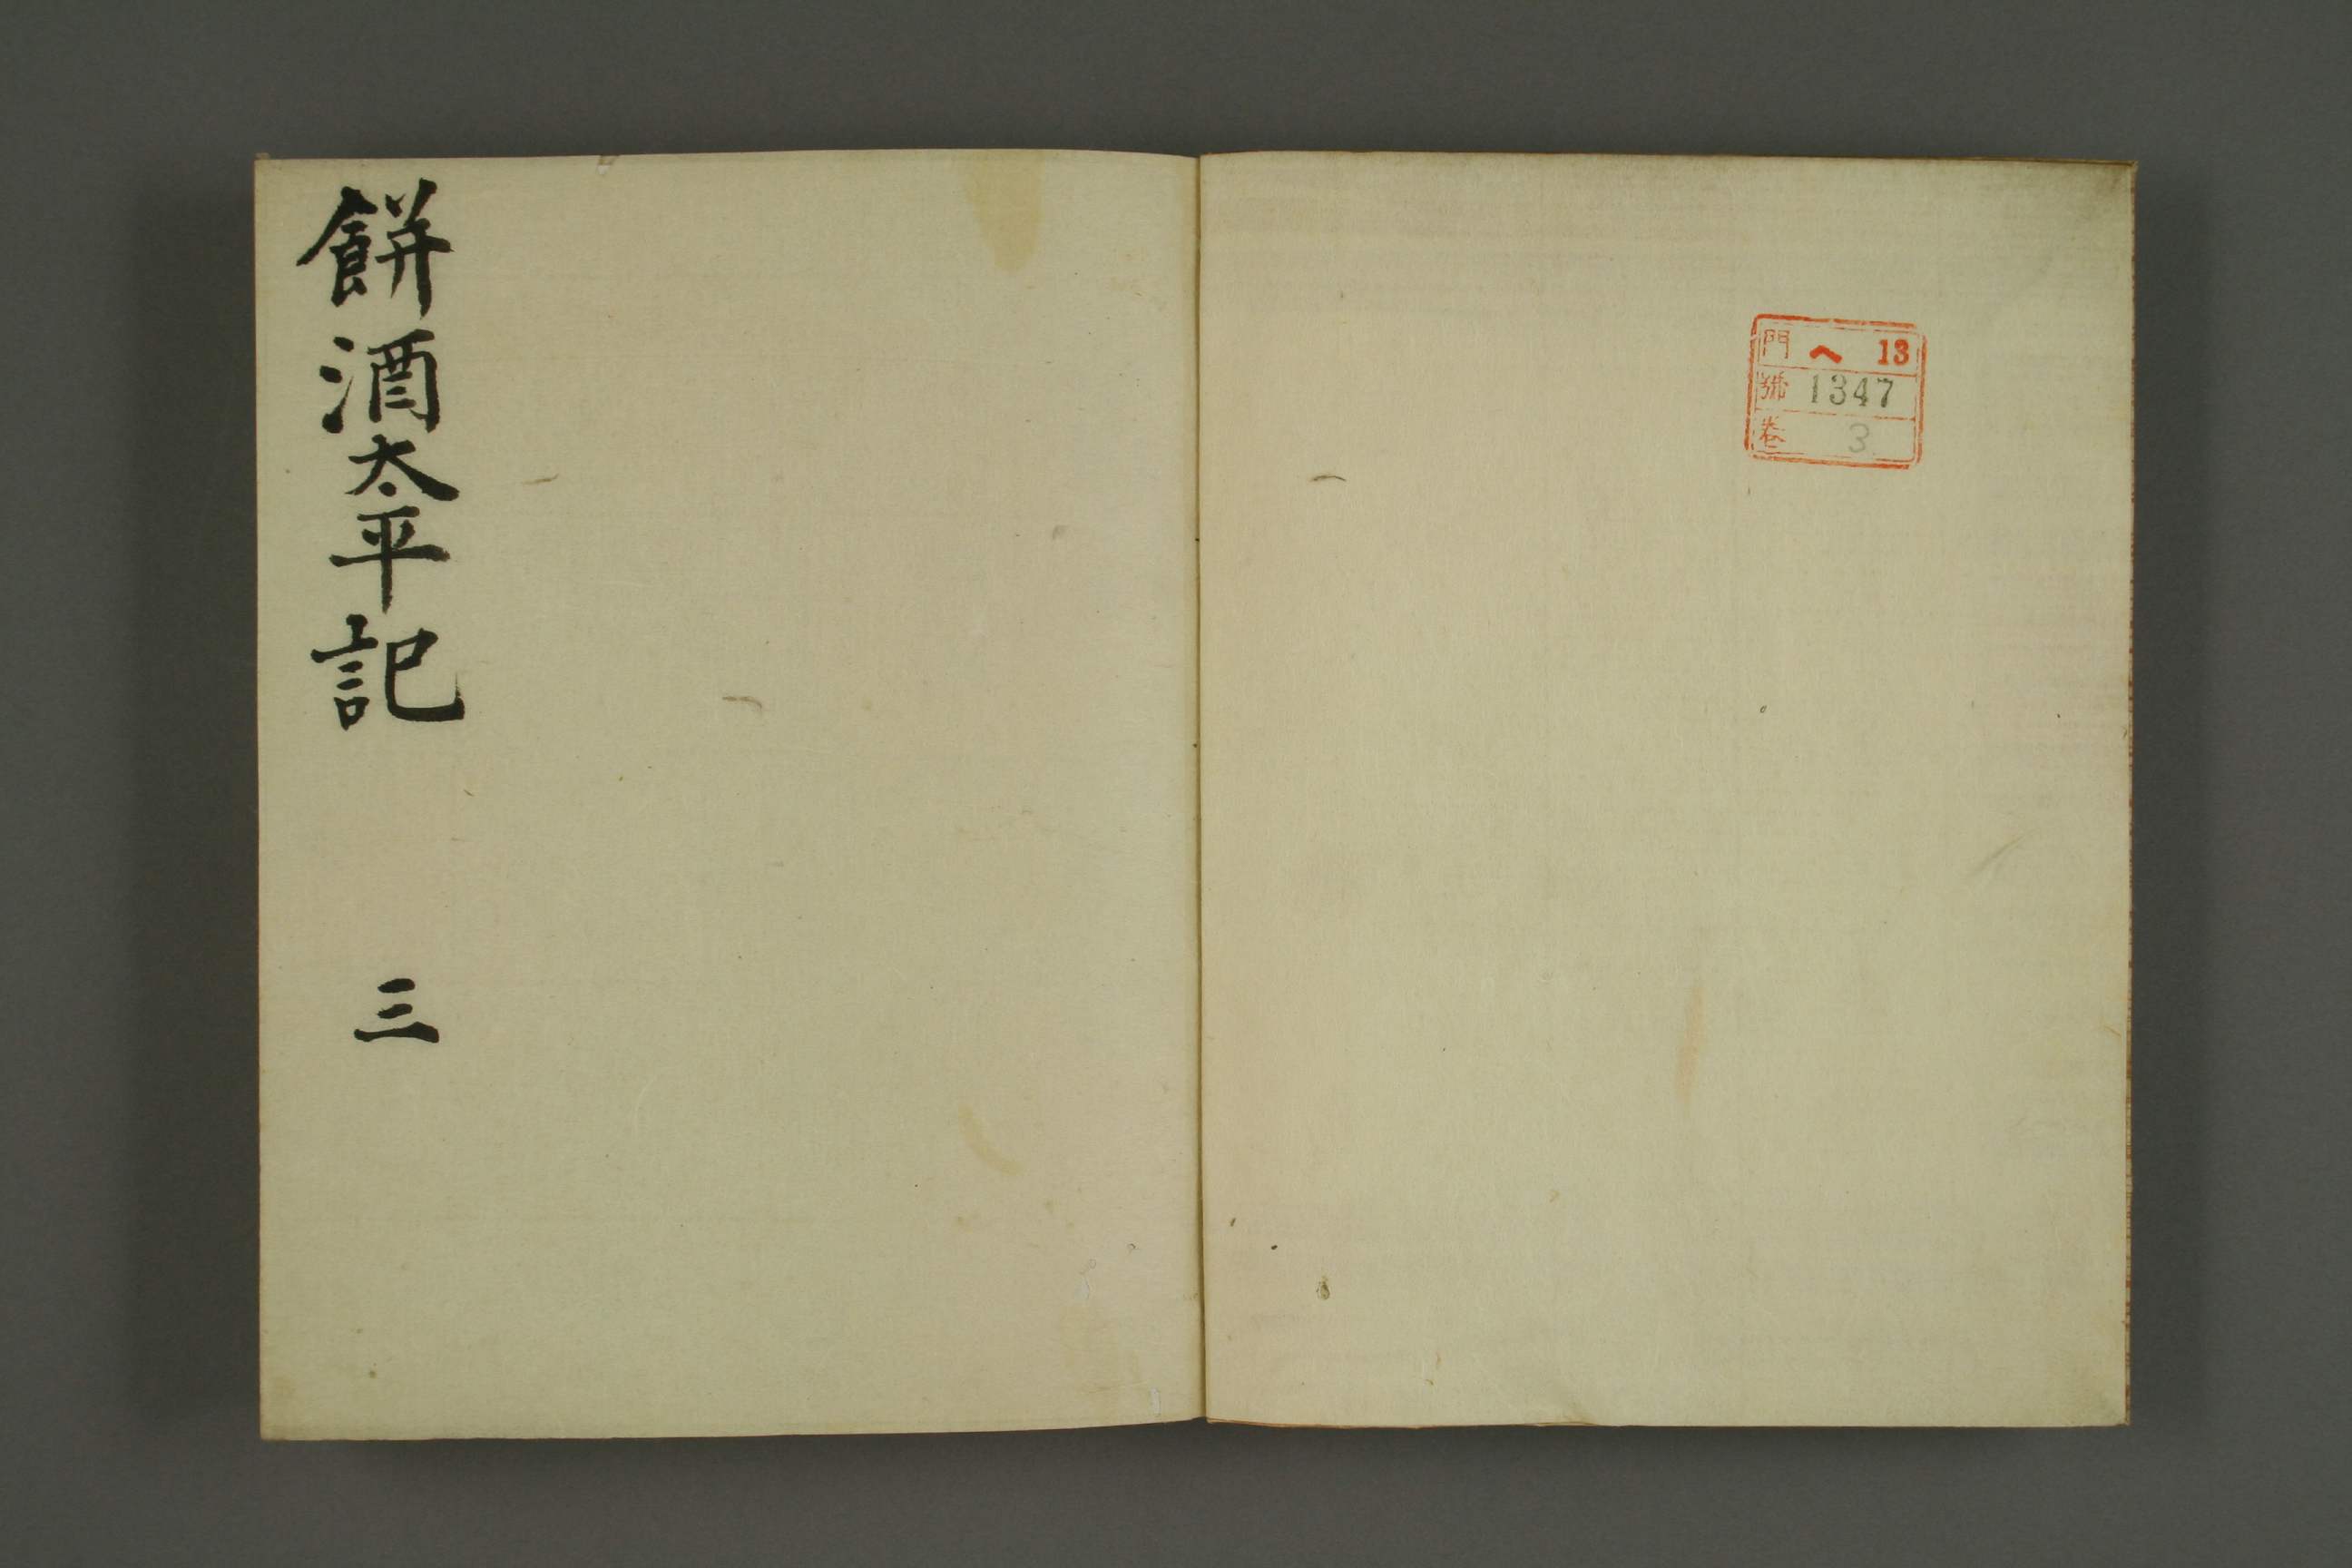 門 へ 13
號 1347
卷 3
餅酒太平記 三